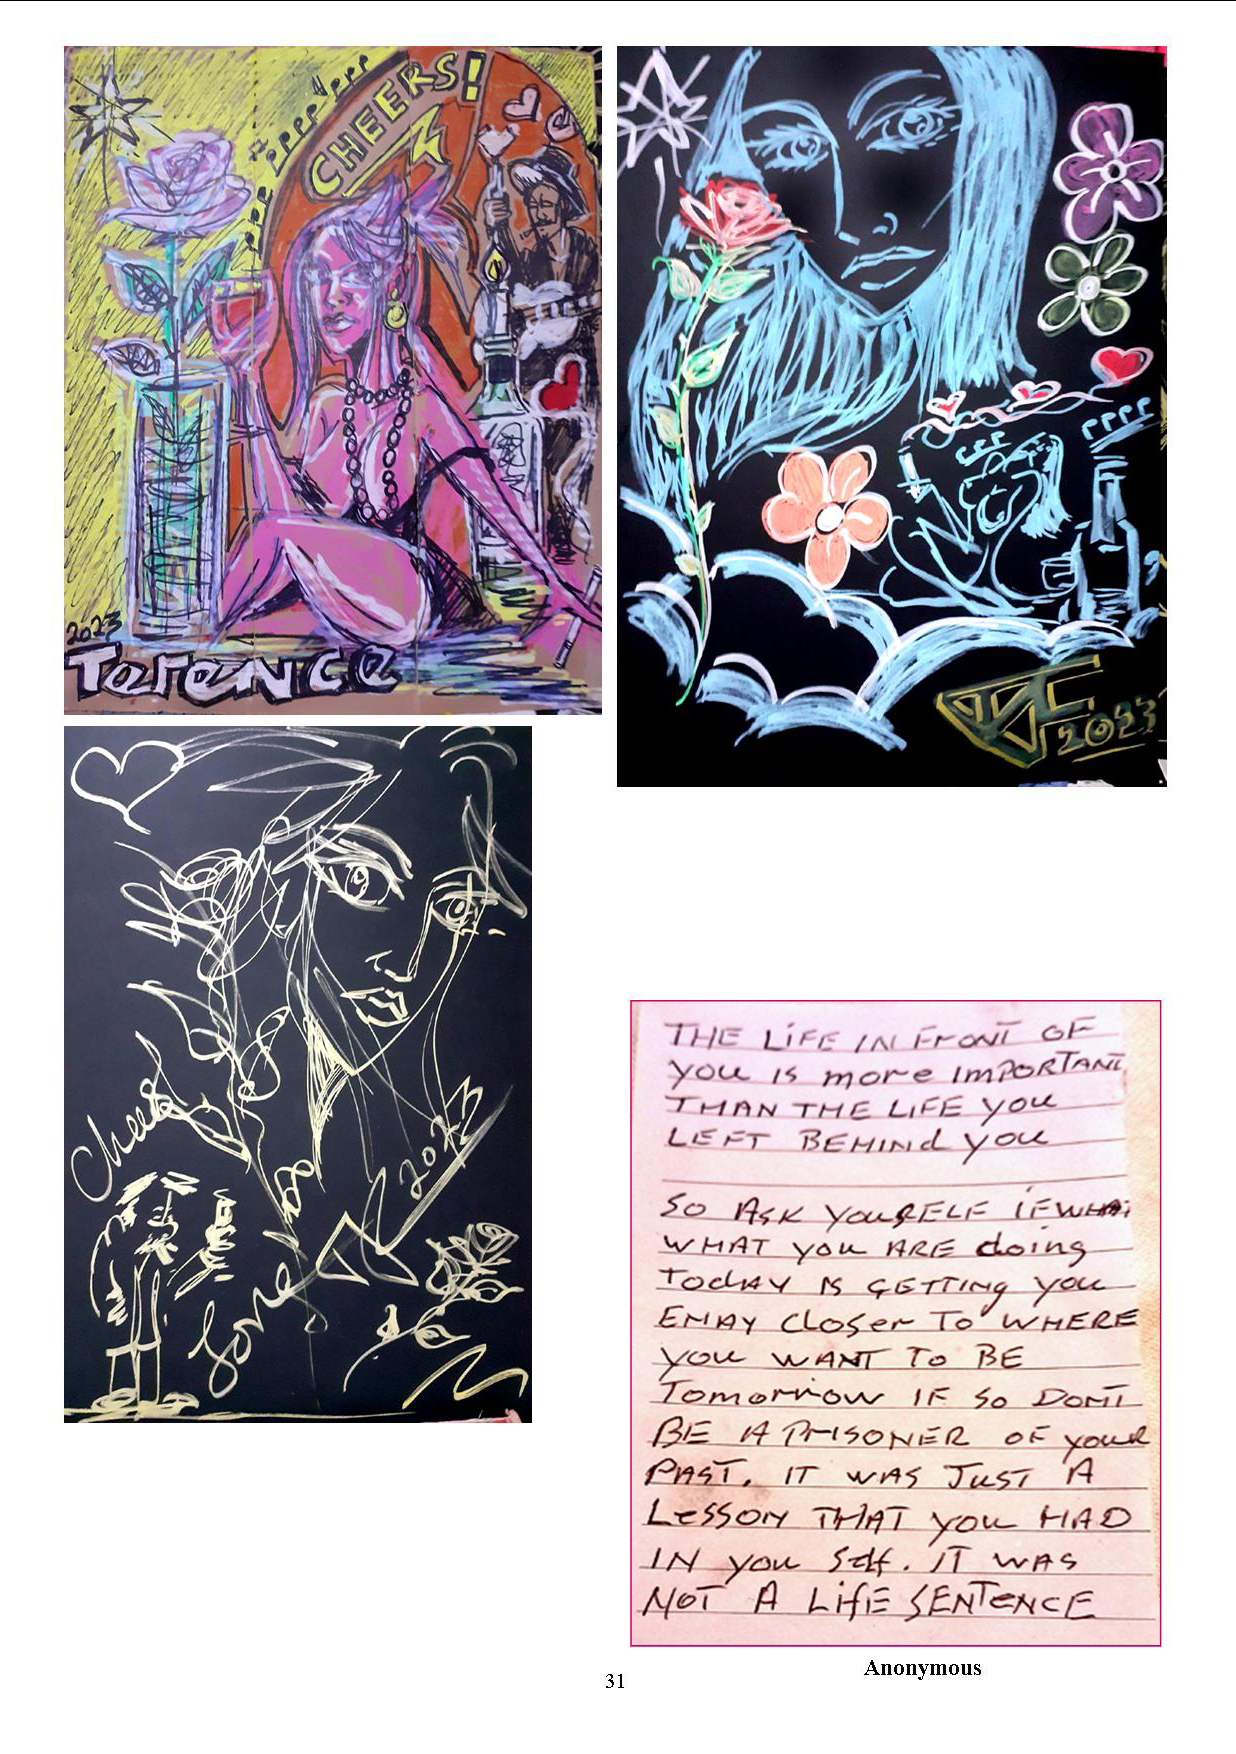 CHEERS!
2023
Terence
2023
Cheers
2023
Love
THE LIFE IN FRONT OF
YOU IS MORE IMPORTANT
THAN THE LIFE YOU
LEFT BEHIND YOU
SO ASK YOURSELF IF WHAT
WHAT YOU ARE doing
TODAY IS GETTING YOU
CLOSER TO WHERE
YOU WANT TO BE
TOMORROW IF SO DONT
BE A PRISONER OF YOUR
PAST. IT WAS JUST A
LESSON THAT YOU HAD
IN YOU Self. IT WAS
NOT A LIFE SENTENCE
Anonymous
31